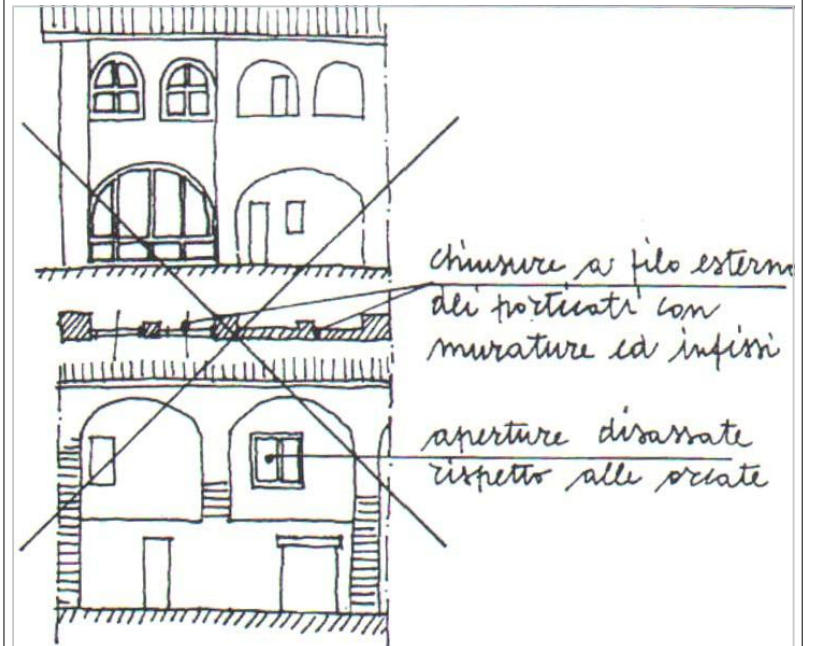 chiusure a filo estern
dei porticati con
murature ed infissi
aperture disassate
rispetto alle arcate